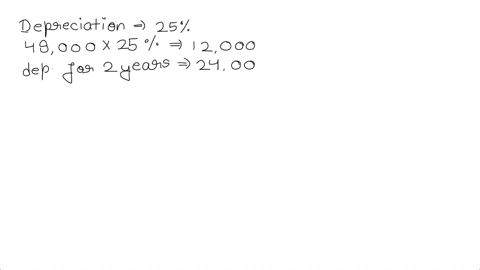 Depreciation ⇒ 25%
48,000 × 25% ⇒ 12,000
dep. for 2 years ⇒ 24.00